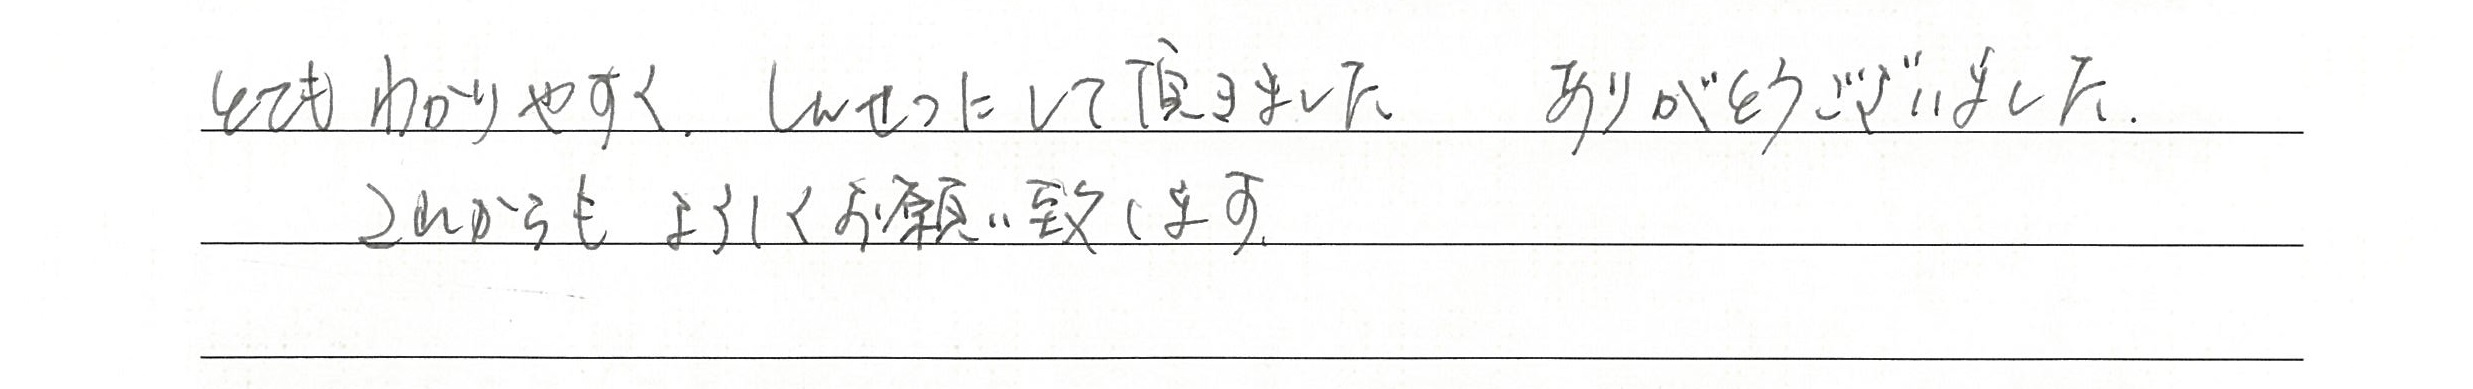 とてもわかりやすく、しんせつにして頂きました ありがとうございました.
これからもよろしくお願い致します.